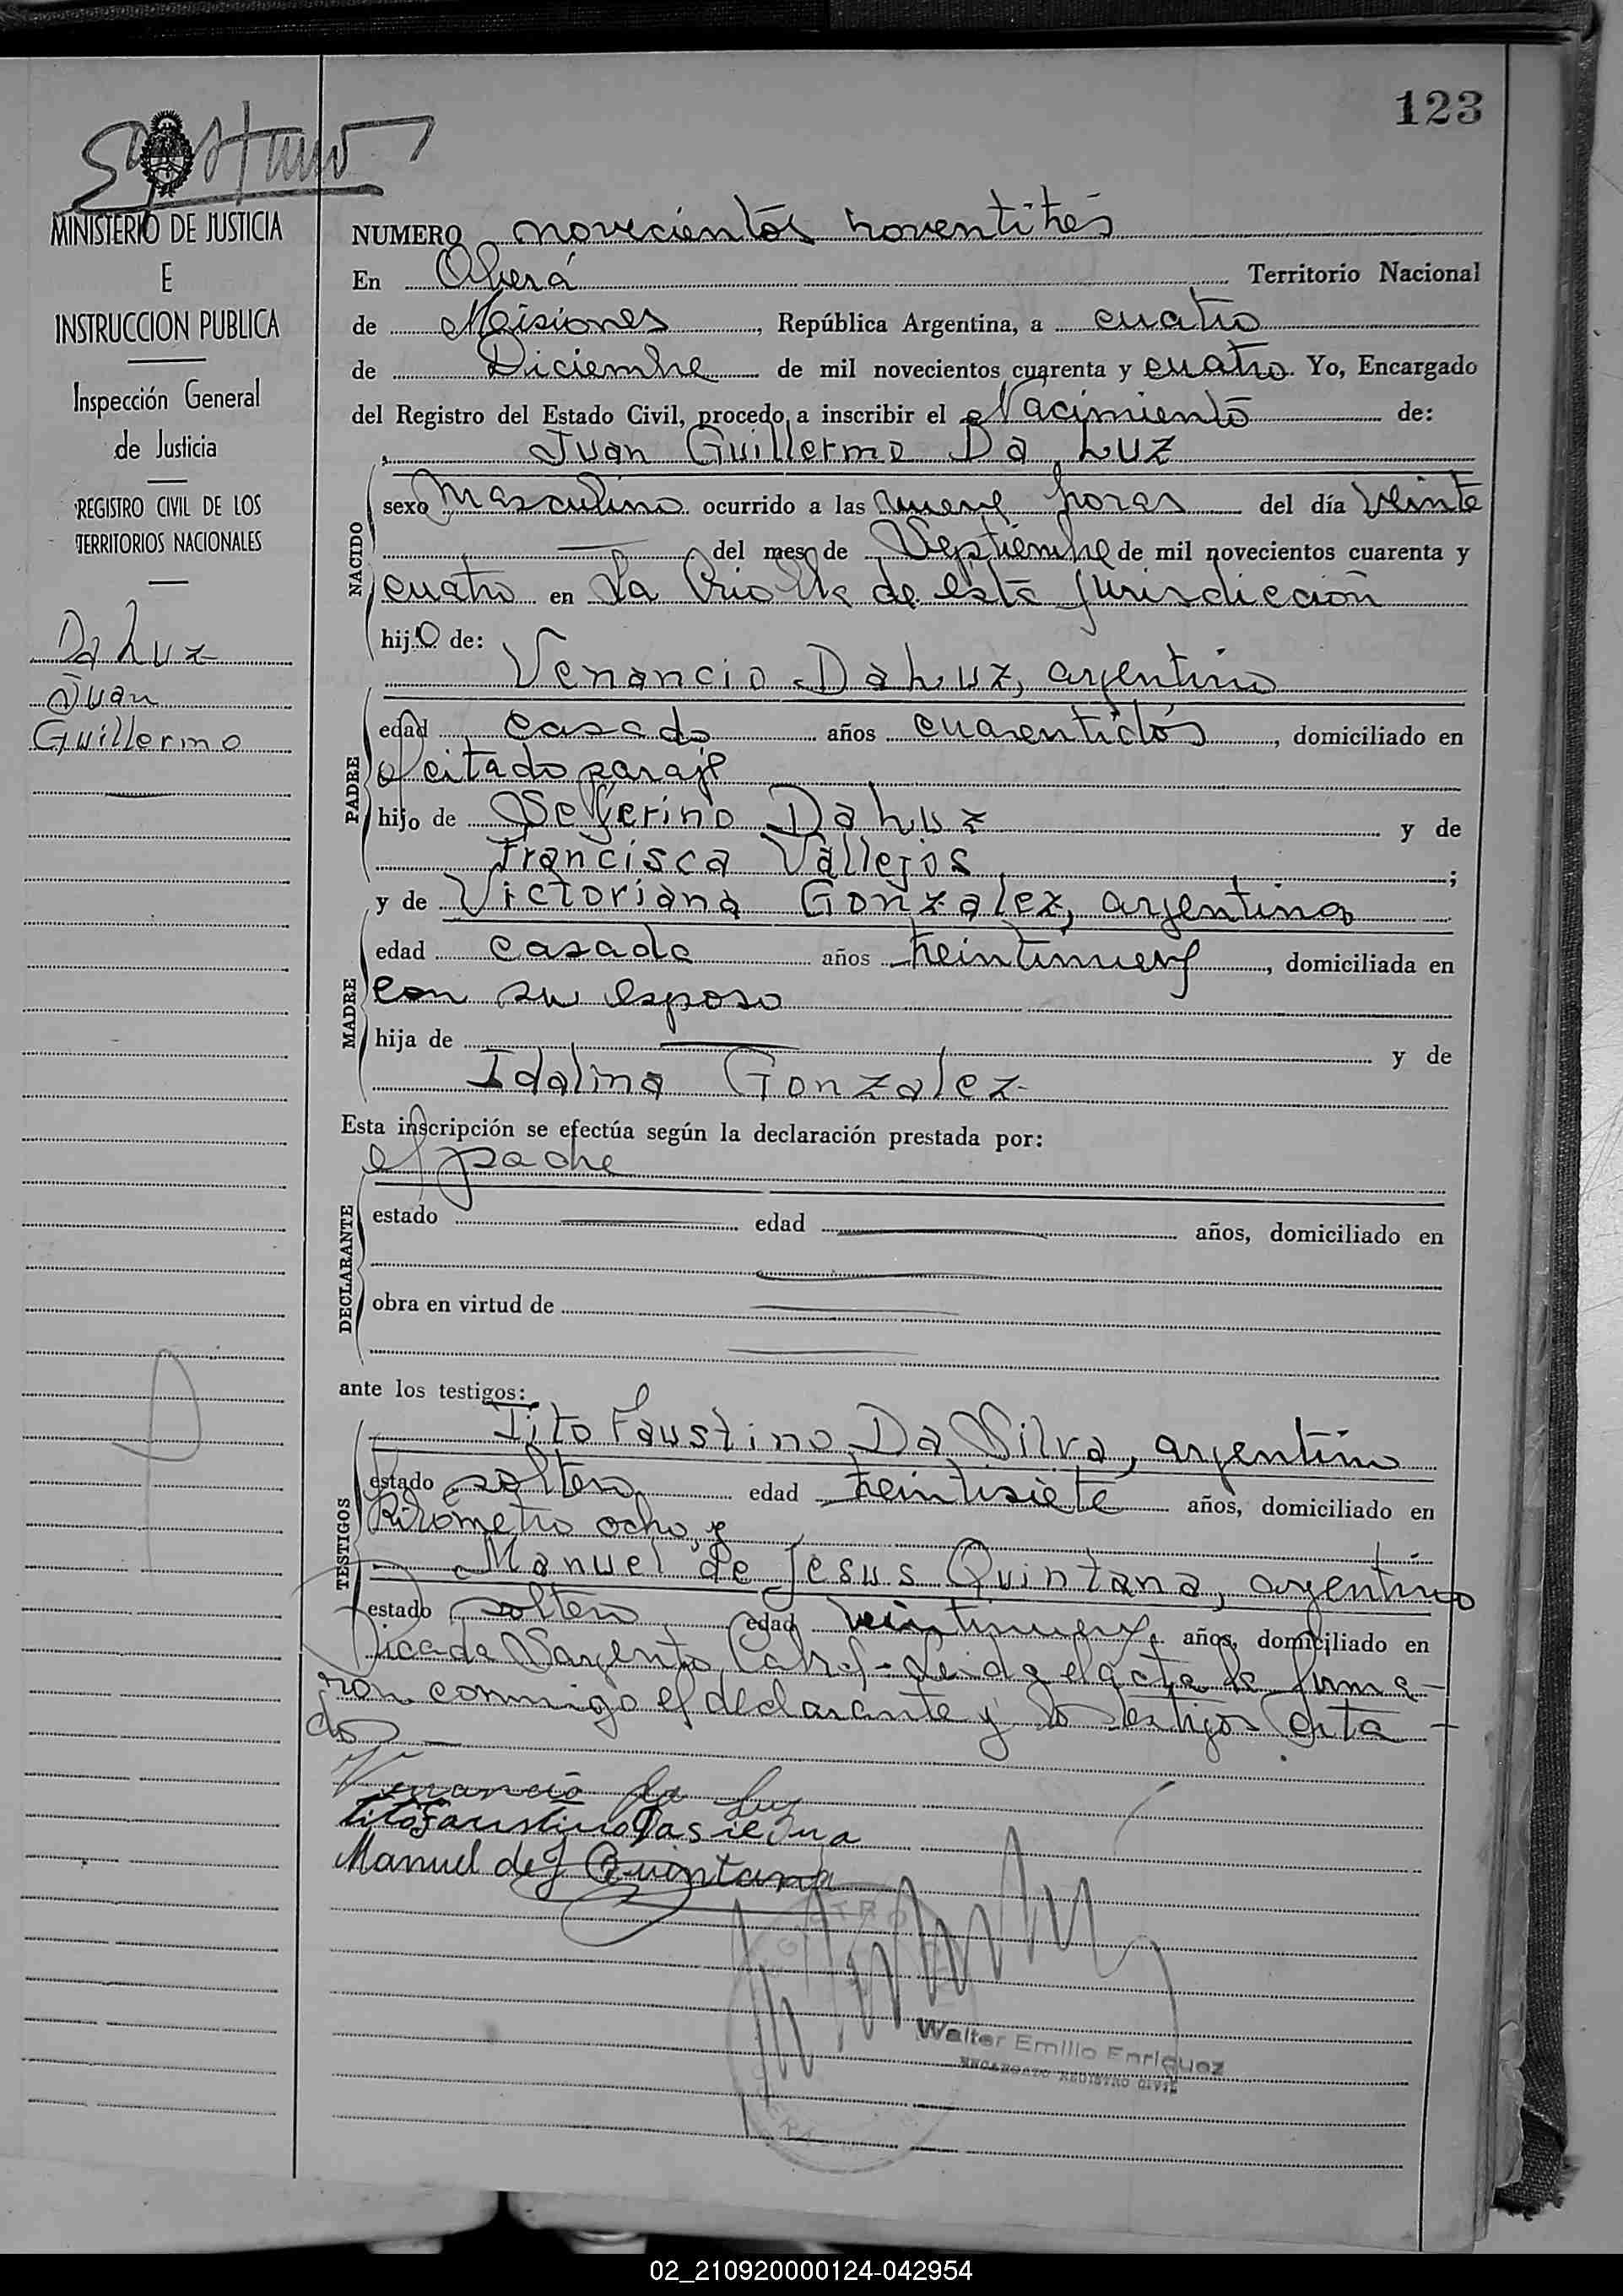 123
MINISTERIO DE JUSTICIA
E
INSTRUCCION PUBLICA
Inspección General
de Justicia
REGISTRO CIVIL DE LOS
TERRITORIOS NACIONALES
Da Luz
Juan
Guillermo
NUMERO novecientos noventitrés
En Oberá Territorio Nacional
de Misiones, República Argentina, a cuatro
de Diciembre de mil novecientos cuarenta y cuatro. Yo, Encargado
del Registro del Estado Civil, procedo a inscribir el Nacimiento de:
Juan Guillermo Da Luz
NACIDO
sexo masculino ocurrido a las nueve horas del día veinte
del mes de Septiembre de mil novecientos cuarenta y
cuatro en La Criolla de esta jurisdicción
hijo de:
Venancio Da Luz, argentino
PADRE
edad casado años cuarentidós, domiciliado en
el citado paraje
hijo de Severino Da Luz y de
Francisca Vallejos;
y de Victoriana Gonzalez, argentina
MADRE
edad casada años treintinueve, domiciliada en
con su esposo
hija de y de
Idalina Gonzalez
Esta inscripción se efectúa según la declaración prestada por:
el padre
DECLARANTE
estado edad años, domiciliado en
obra en virtud de
ante los testigos:
TESTIGOS
Tito Faustino Da Silva, argentino
estado soltero edad treintisiete años, domiciliado en
Kilómetro ocho, y
Manuel de Jesus Quintana, argentino
estado soltero edad veintinueve años, domiciliado en
Picada Sargento Cabral.- Leida el acta la firma-
ron conmigo el declarante y los testigos cita-
dos
Venancio da Luz
Tito Faustino Da
Manuel de J Quintana
Walter Emilio Enriquez
ENCARGADO REGISTRO CIVIL
02_210920000124-042954